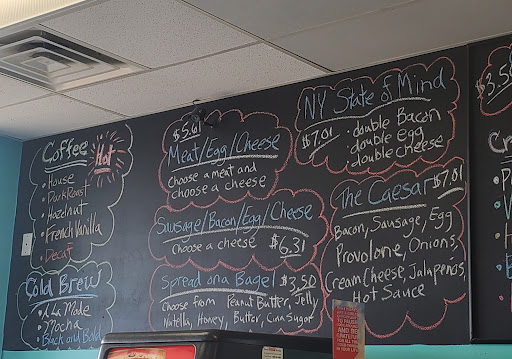 Coffee
Hot
• House
• Dark Roast
• Hazelnut
• French Vanilla
• Decaf
Cold Brew
• A La Mode
• Mocha
• Black and Bold
$5.61
Meat/Egg/Cheese
Choose a meat and
choose a cheese
Sausage/Bacon/Egg/Cheese
choose a cheese $6.31
Spread on a Bagel $3.50
Choose from Peanut Butter, Jelly
Nutella, Honey, Butter, Cinn Sugar
NY State of Mind
$7.01 • double Bacon
• double egg
• double cheese
The Caesar $7.01
Bacon, Sausage, Egg
Provolone, Onions,
Cream Cheese, Jalapeños,
Hot Sauce
$3.5